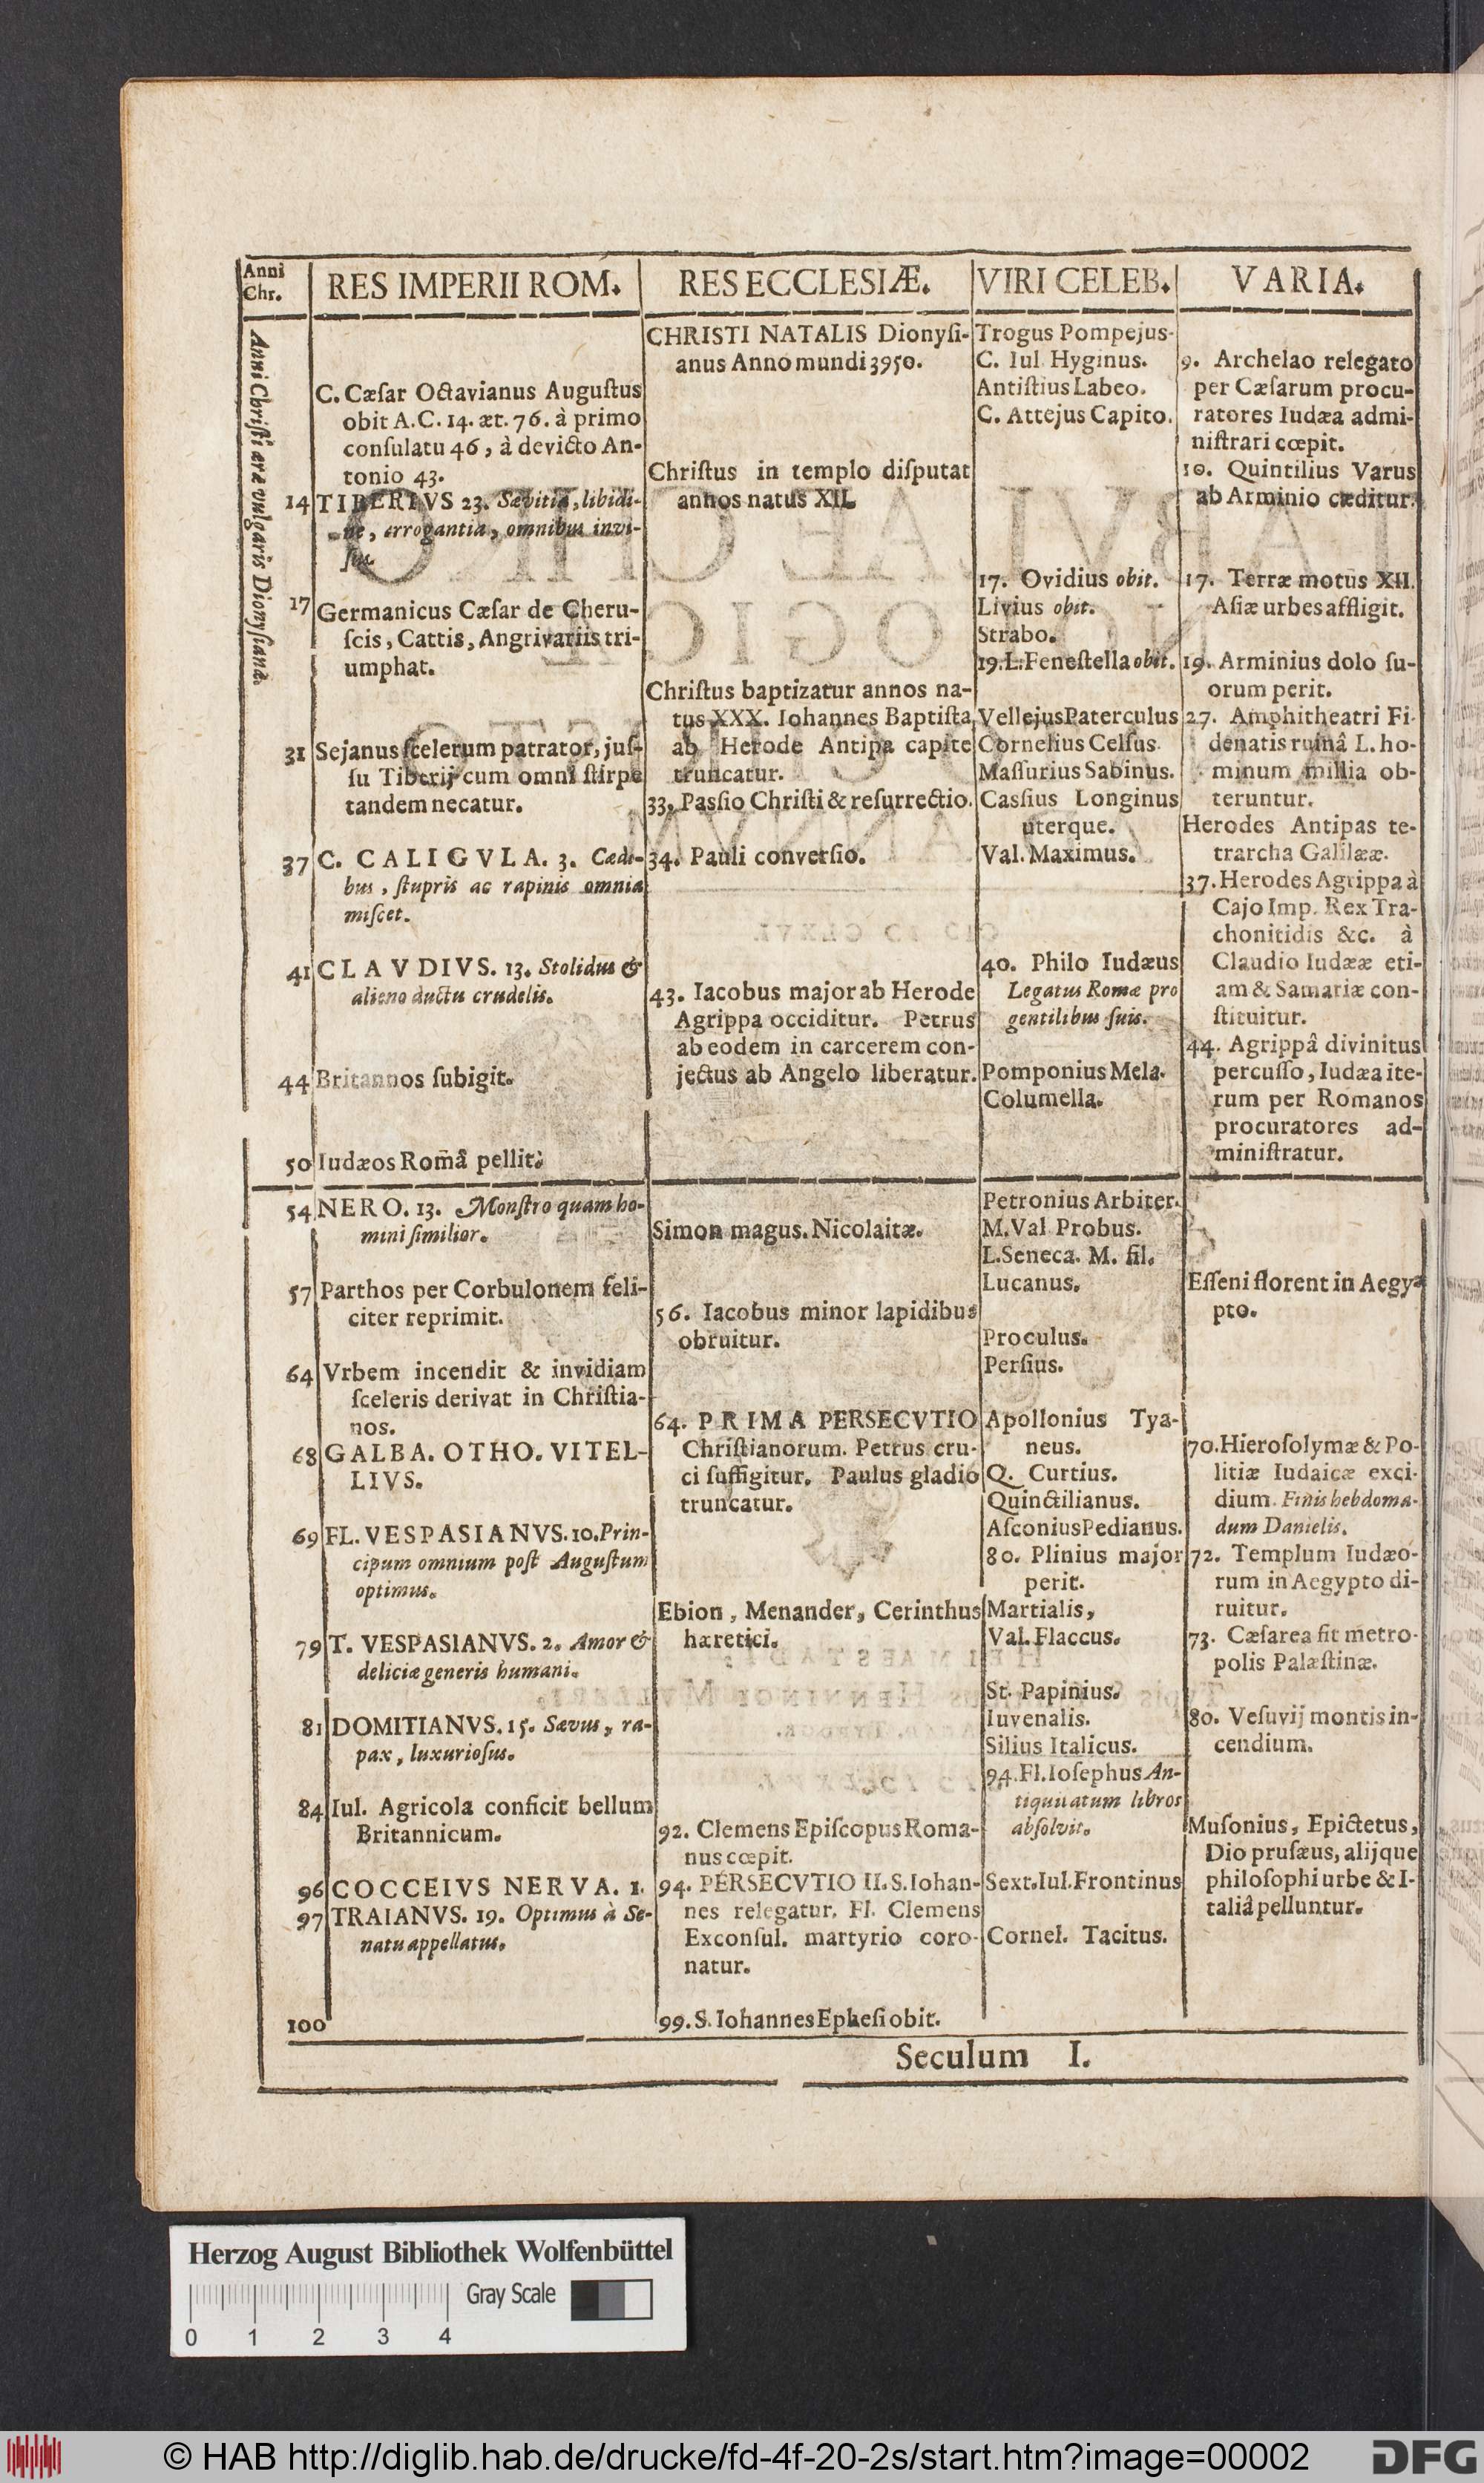 Anni
Chr.
RES IMPERII ROM.
RES ECCLESIÆ.
VIRI CELEB.
VARIA.
Anni Christi æræ vulgaris Dionysianæ.
C. Cæſar Octavianus Auguſtus
obit A.C. 14. æt. 76. à primo
conſulatu 46, à devicto An-
tonio 43.
14 TIBERIVS 23. Sævitia, libidi-
ne, arrogantia, omnibus invi-
ſus.
17 Germanicus Cæſar de Cheru-
ſcis, Cattis, Angrivariis tri-
umphat.
31 Sejanus ſcelerum patrator, juſ-
ſu Tiberij cum omni ſtirpe
tandem necatur.
37 C. CALIGVLA. 3. Cædi-
bus, ſtupris ac rapinis omnia
miſcet.
41 CLAVDIVS. 13. Stolidus &
alieno ductu crudelis.
44 Britannos ſubigit.
50 Iudæos Româ pellit.
54 NERO. 13. Monſtro quam ho-
mini ſimilior.
57 Parthos per Corbulonem feli-
citer reprimit.
64 Vrbem incendit & invidiam
ſceleris derivat in Chriſtia-
nos.
68 GALBA. OTHO. VITEL-
LIVS.
69 FL. VESPASIANVS. 10. Prin-
cipum omnium poſt Auguſtum
optimus.
79 T. VESPASIANVS. 2. Amor &
deliciæ generis humani.
81 DOMITIANVS. 15. Sævus, ra-
pax, luxurioſus.
84 Iul. Agricola conficit bellum
Britannicum.
96 COCCEIVS NERVA. 1.
97 TRAIANVS. 19. Optimus à Se-
natu appellatus.
100
CHRISTI NATALIS Dionyſi-
anus Anno mundi 3950.
Chriſtus in templo diſputat
annos natus XII.
Chriſtus baptizatur annos na-
tus XXX. Iohannes Baptiſta
ab Herode Antipa capite
truncatur.
33. Paſsio Chriſti & reſurrectio.
34. Pauli converſio.
43. Iacobus major ab Herode
Agrippa occiditur. Petrus
ab eodem in carcerem con-
jectus ab Angelo liberatur.
Simon magus. Nicolaitæ.
56. Iacobus minor lapidibus
obruitur.
64. PRIMA PERSECVTIO
Chriſtianorum. Petrus cru-
ci ſuffigitur. Paulus gladio
truncatur.
Ebion, Menander, Cerinthus
hæretici.
92. Clemens Epiſcopus Roma-
nus cœpit.
94. PERSECVTIO II. S. Iohan-
nes relegatur. Fl. Clemens
Exconſul. martyrio coro-
natur.
99. S. Iohannes Epheſi obit.
Trogus Pompejus.
C. Iul. Hyginus.
Antiſtius Labeo.
C. Attejus Capito.
17. Ovidius obit.
Livius obit.
Strabo.
19. L. Feneſtella obit.
Vellejus Paterculus
Cornelius Celſus.
Maſſurius Sabinus.
Caſsius Longinus
uterque.
Val. Maximus.
40. Philo Iudæus
Legatus Romæ pro
gentilibus ſuis.
Pomponius Mela.
Columella.
Petronius Arbiter.
M. Val Probus.
L. Seneca. M. fil.
Lucanus.
Proculus.
Perſius.
Apollonius Tya-
neus.
Q. Curtius.
Quinctilianus.
Aſconius Pedianus.
80. Plinius major
perit.
Martialis,
Val. Flaccus.
St. Papinius.
Iuvenalis.
Silius Italicus.
94. Fl. Ioſephus An-
tiquitatum libros
abſolvit.
Sext. Iul. Frontinus
Cornel. Tacitus.
9. Archelao relegato
per Cæſarum procu-
ratores Iudæa admi-
niſtrari cœpit.
10. Quintilius Varus
ab Arminio cæditur.
17. Terræ motus XII.
Aſiæ urbes affligit.
19. Arminius dolo ſu-
orum perit.
27. Amphitheatri Fi-
denatis ruinâ L. ho-
minum millia ob-
teruntur.
Herodes Antipas te-
trarcha Galilææ.
37. Herodes Agrippa à
Cajo Imp. Rex Tra-
chonitidis &c. à
Claudio Iudææ eti-
am & Samariæ con-
ſtituitur.
44. Agrippâ divinitus
percuſſo, Iudæa ite-
rum per Romanos
procuratores ad-
miniſtratur.
Eſſeni florent in Aegy-
pto.
70. Hieroſolymæ & Po-
litiæ Iudaicæ exci-
dium. Finis hebdoma-
dum Danielis.
72. Templum Iudæo-
rum in Aegypto di-
ruitur.
73. Cæſarea fit metro-
polis Palæſtinæ.
80. Veſuvij montis in-
cendium.
Muſonius, Epictetus,
Dio pruſæus, alijque
philoſophi urbe & I-
taliâ pelluntur.
Seculum I.
Herzog August Bibliothek Wolfenbüttel
Gray Scale
0 1 2 3 4
© HAB http://diglib.hab.de/drucke/fd-4f-20-2s/start.htm?image=00002
DFG